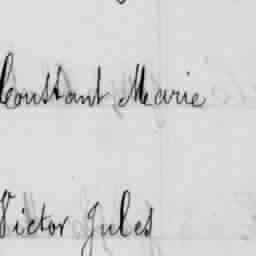 Constant Marie
Victor Jules